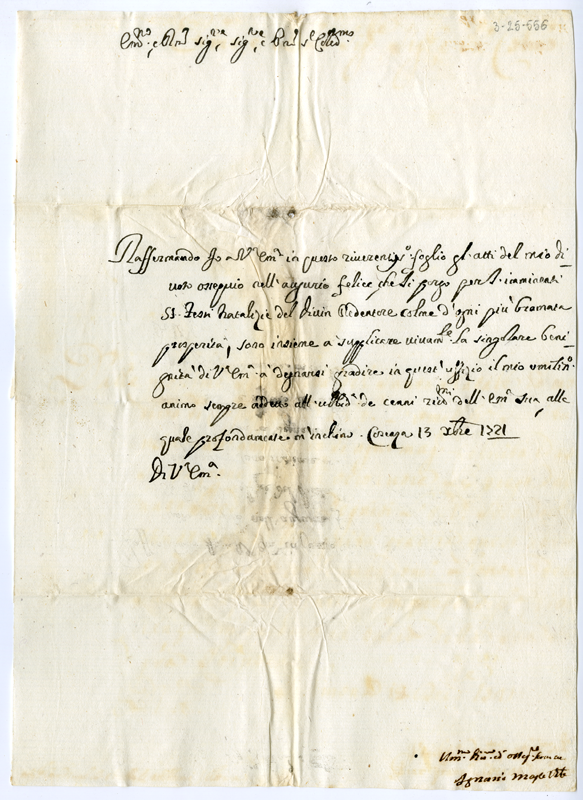 3-25-556
Em.mo e Rev.mo Sig.re, Sig.re e Pn~e Col.mo
Raffermando Io a V.ra Em.a in questo riverentis.o foglio gl'atti del mio di-
uoto ossequio coll'augurio felice, che Li porgo per l'imminenti
SS. Feste Natalizie del Divin Redentore colme d'ogni più bramata
prosperità, sono insieme a supplicare vivam.te la singolare beni-
gnità di V.ra Em.a à degnarsi gradire in quest'uffizio il mio umilis.o
animo sempre all' de cenni dell'Em.a Sua, alla
quale profondamente m'inchino. 13 Xbre 1721
Di V.ra Em.a
Um.mo
Ignazio